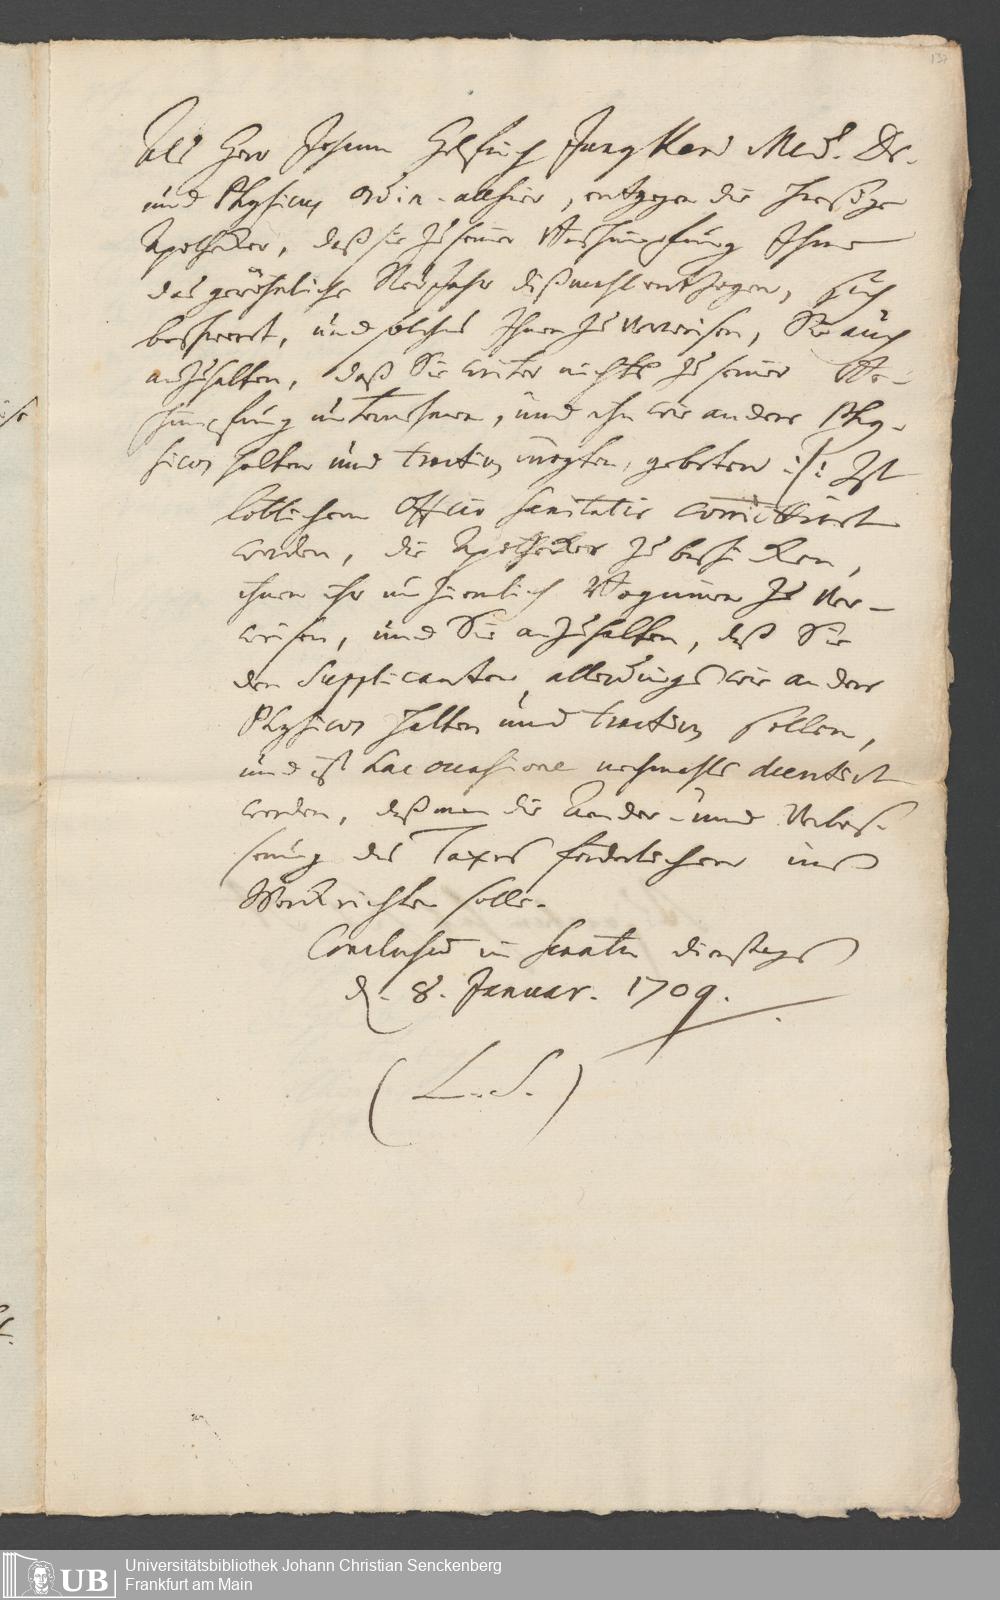 137
Als Herr Johann Helfrich Jungken Med. Dr.
und Physicus ordin. allhier, entgegen die hiesige
Apothecker, daß sie zu seiner Beschimpfung Ihme
das gewöhnliche Neujahr dißmahl entzogen, sich
beschwert, und solches Ihnen zu verweisen, Sie auch
anzuhalten, daß Sie weiter nichts zu seiner Be-
schimpfung unternehmen, und ihn wie andere Phy-
sicos halten und tractiren mögten, gebetten :/: Ist
löblichem Officio Sanitatis committirt
worden, die Apothecker zu beschicken,
ihnen ihr unziemlich Beginnen zu ver-
weisen, und Sie anzuhalten, daß Sie
den Supplicanten, allerdings wie andere
Physicos halten und tractiren sollen,
und ist hac occasione nochmahls decretirt
worden, daß man die Aender- und Verbes-
serung des Taxes förderlichem ins
Werck richten solle.
Conclusum in Senatu Dienstags
d. 8. Januar. 1709.
(L. S.)
UB
Universitätsbibliothek Johann Christian Senckenberg
Frankfurt am Main